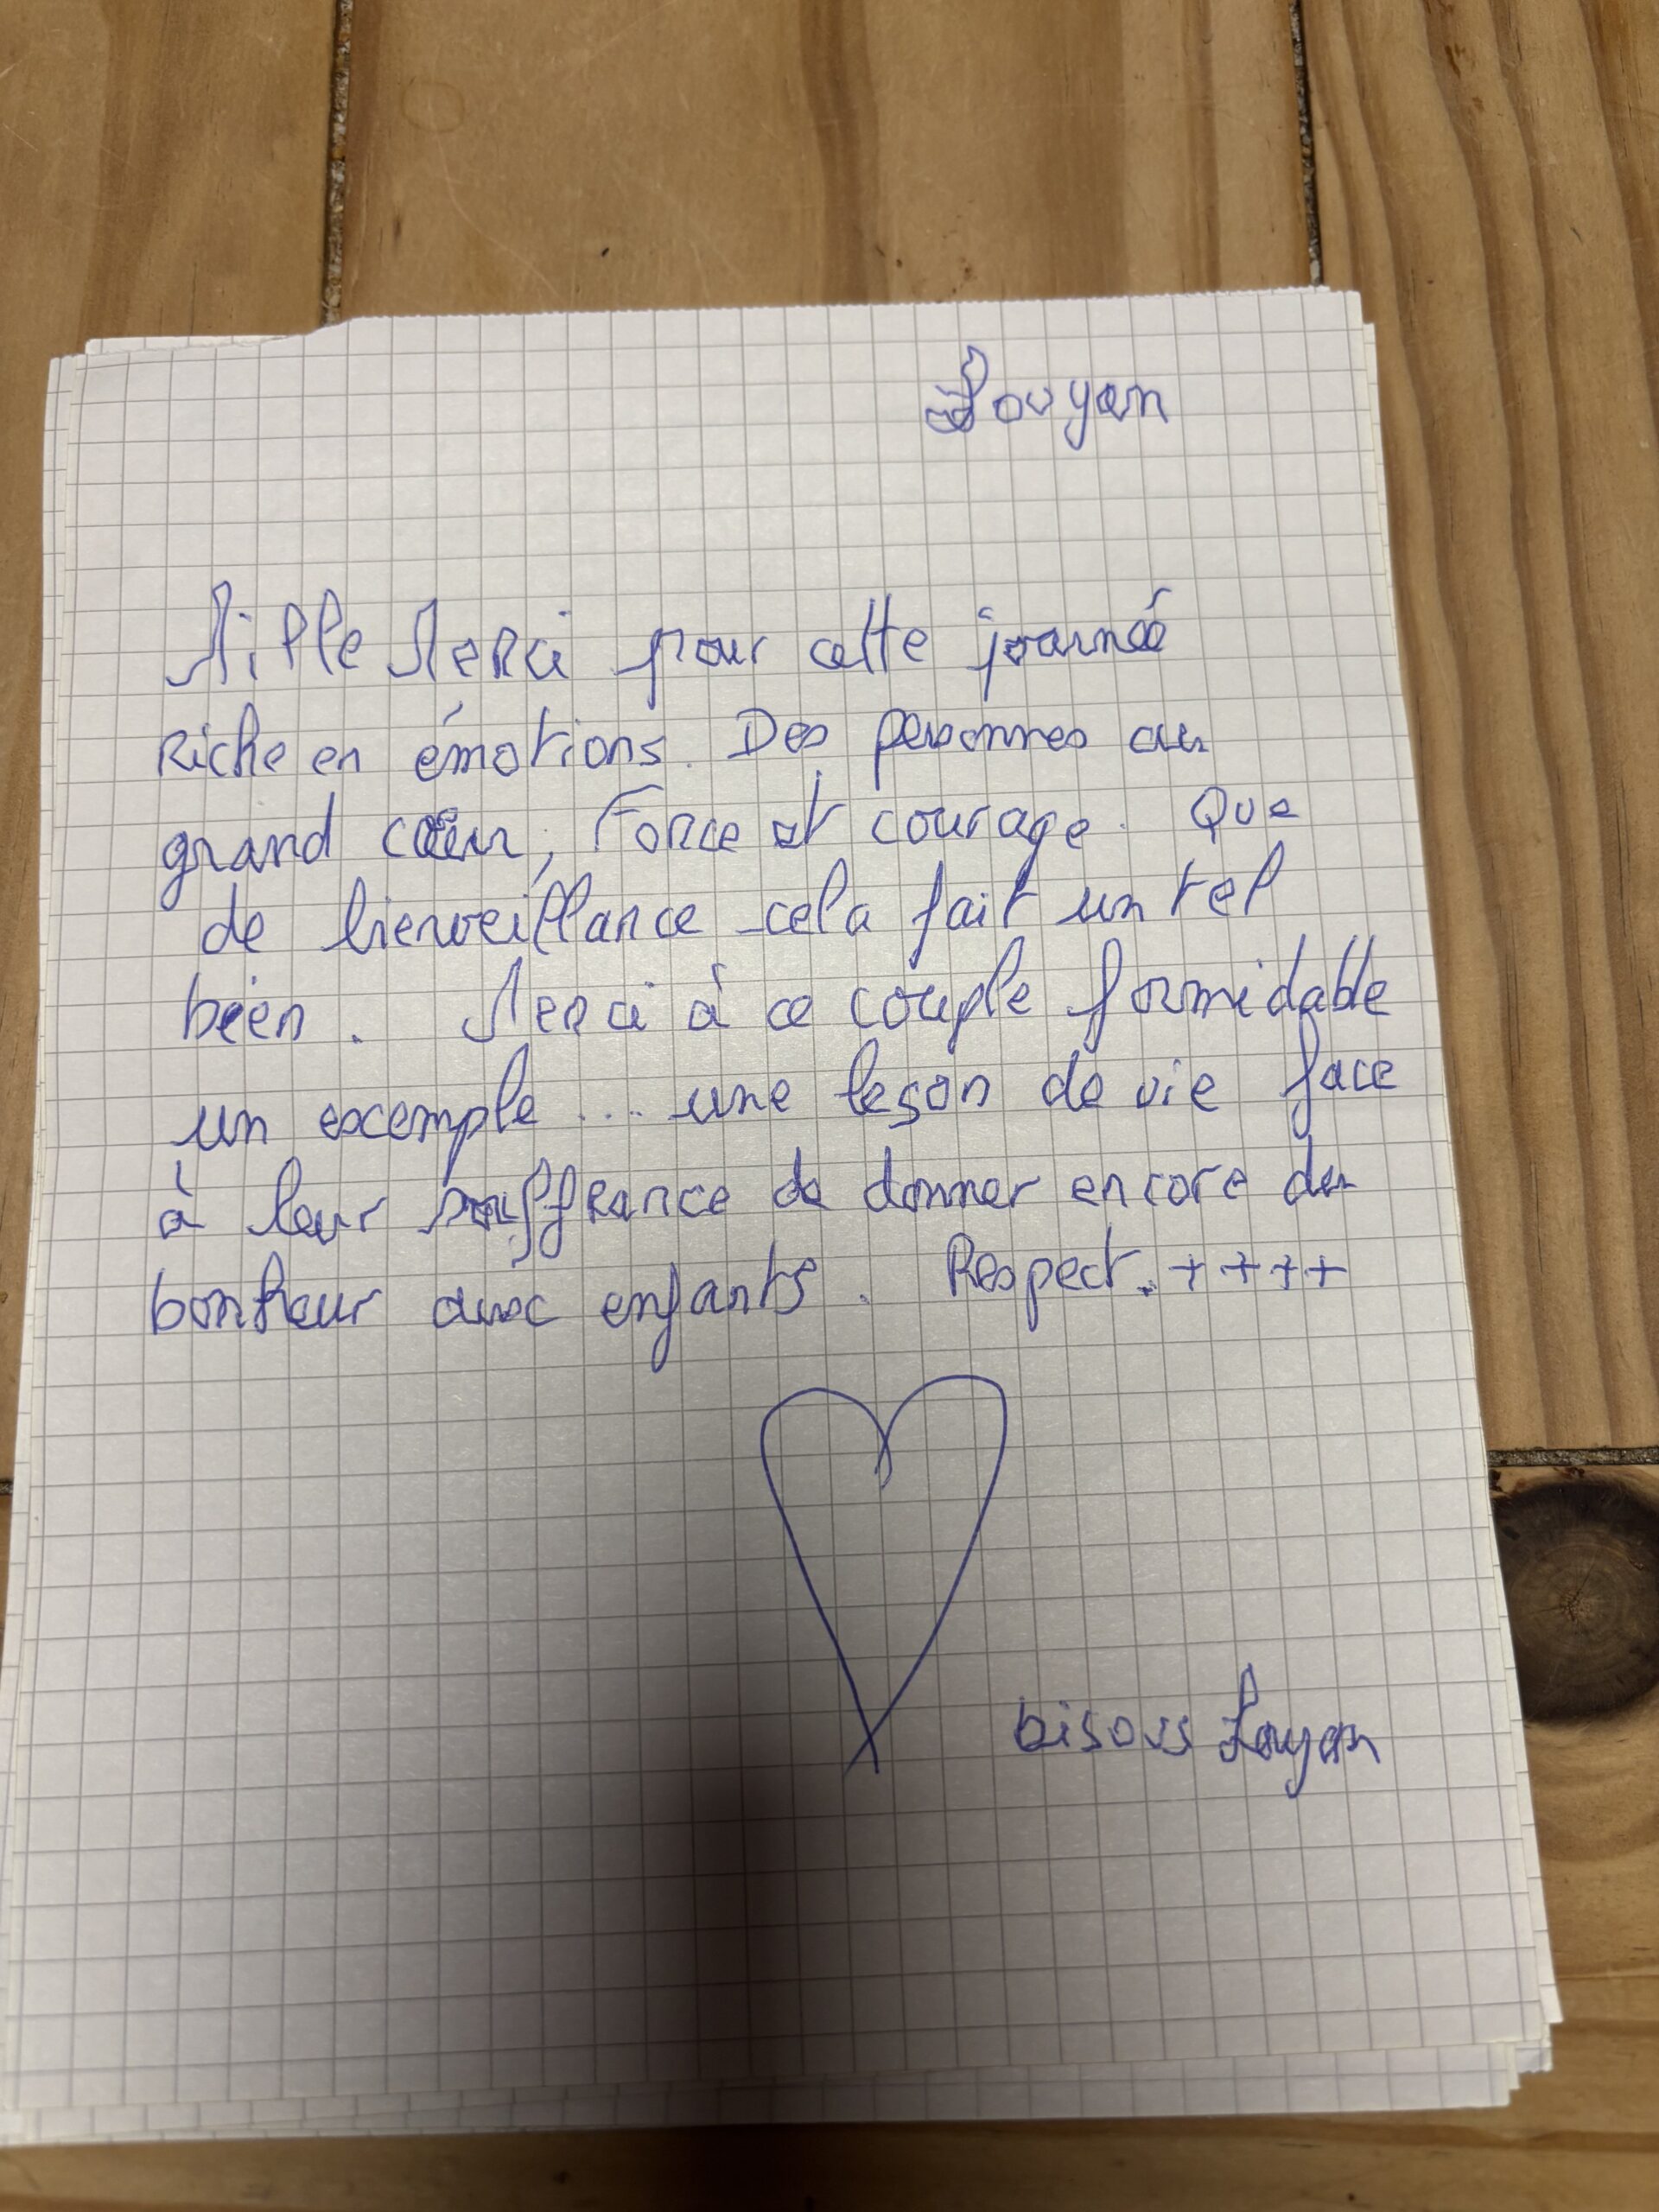 Louyan
Mille Merci pour cette journée
Riche en émotions. Des personnes au
grand cœur, Force et courage. Que
de bienveillance cela fait un tel
bien. Merci à ce couple formidable
un excemple ... une leson de vie face
à leur souffrance de donner encore du
bonheur avec enfants. Respect. ++++
bisous Louyan